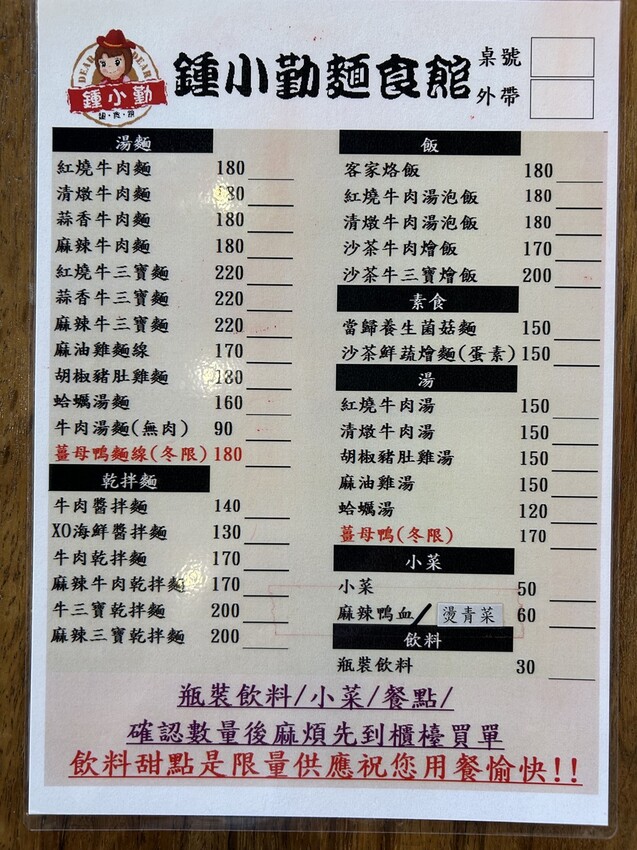 DEAR DEAR
鍾小勤
麵·食·館
鍾小勤麵食館
桌號
外帶
湯麵
紅燒牛肉麵 180
清燉牛肉麵 180
蒜香牛肉麵 180
麻辣牛肉麵 180
紅燒牛三寶麵 220
蒜香牛三寶麵 220
麻辣牛三寶麵 220
麻油雞麵線 170
胡椒豬肚雞麵 180
蛤蠣湯麵 160
牛肉湯麵(無肉) 90
薑母鴨麵線(冬限) 180
乾拌麵
牛肉醬拌麵 140
XO海鮮醬拌麵 130
牛肉乾拌麵 170
麻辣牛肉乾拌麵 170
牛三寶乾拌麵 200
麻辣三寶乾拌麵 200
飯
客家烙飯 180
紅燒牛肉湯泡飯 180
清燉牛肉湯泡飯 180
沙茶牛肉燴飯 170
沙茶牛三寶燴飯 200
素食
當歸養生菌菇麵 150
沙茶鮮蔬燴麵(蛋素) 150
湯
紅燒牛肉湯 150
清燉牛肉湯 150
胡椒豬肚雞湯 150
麻油雞湯 150
蛤蠣湯 120
薑母鴨(冬限) 170
小菜
小菜 50
麻辣鴨血/燙青菜 60
飲料
瓶裝飲料 30
瓶裝飲料/小菜/餐點/
確認數量後麻煩先到櫃檯買單
飲料甜點是限量供應祝您用餐愉快!!